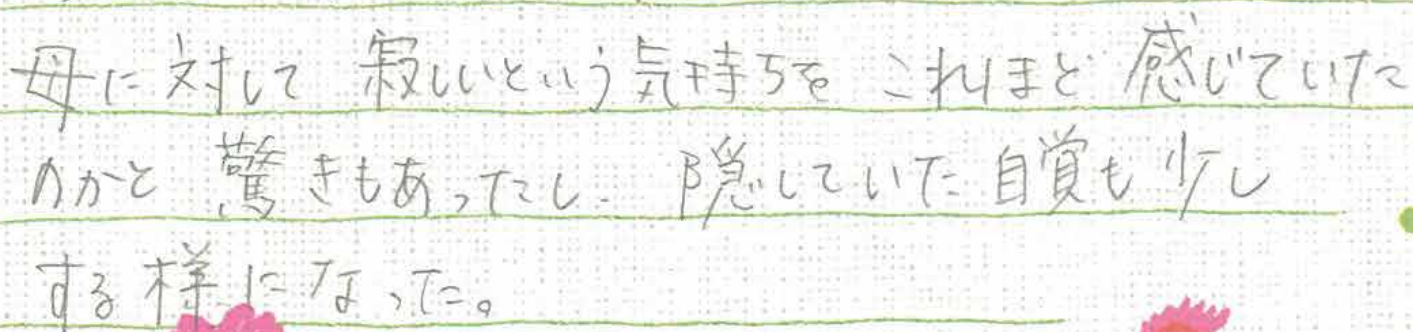 母に対して 寂しいという気持ちを これほど 感じていた
のかと 驚きもあったし、隠していた自覚も少し
する様になった。